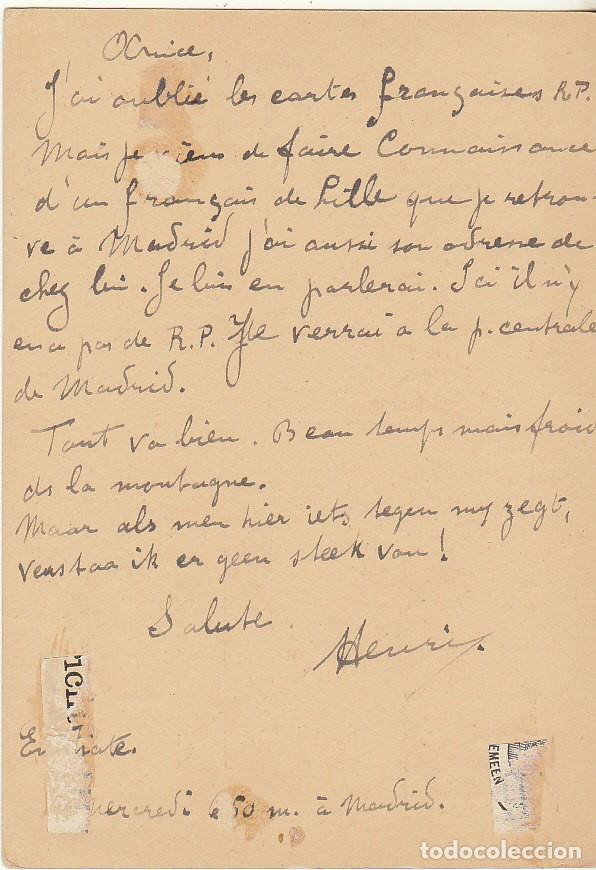 J'ai oublié les cartes françaises R.P.
Mais je viens de faire Connaissance
d'un français de Lille que je retrou-
ve à Madrid j'ai aussi son adresse de
chez lui. Je lui en parlerai. Ici il n'y
en a pas de R.P. Je verrai a la p. centrale
de Madrid.
Tout va bien. Beau temps mais froid
ds la montagne.
Maar als men hier iets tegen my zegt,
verstaa ik er geen steek van!
Salute.
Henri.
mercredi 50 m. à Madrid.
EMEEN
todocoleccion